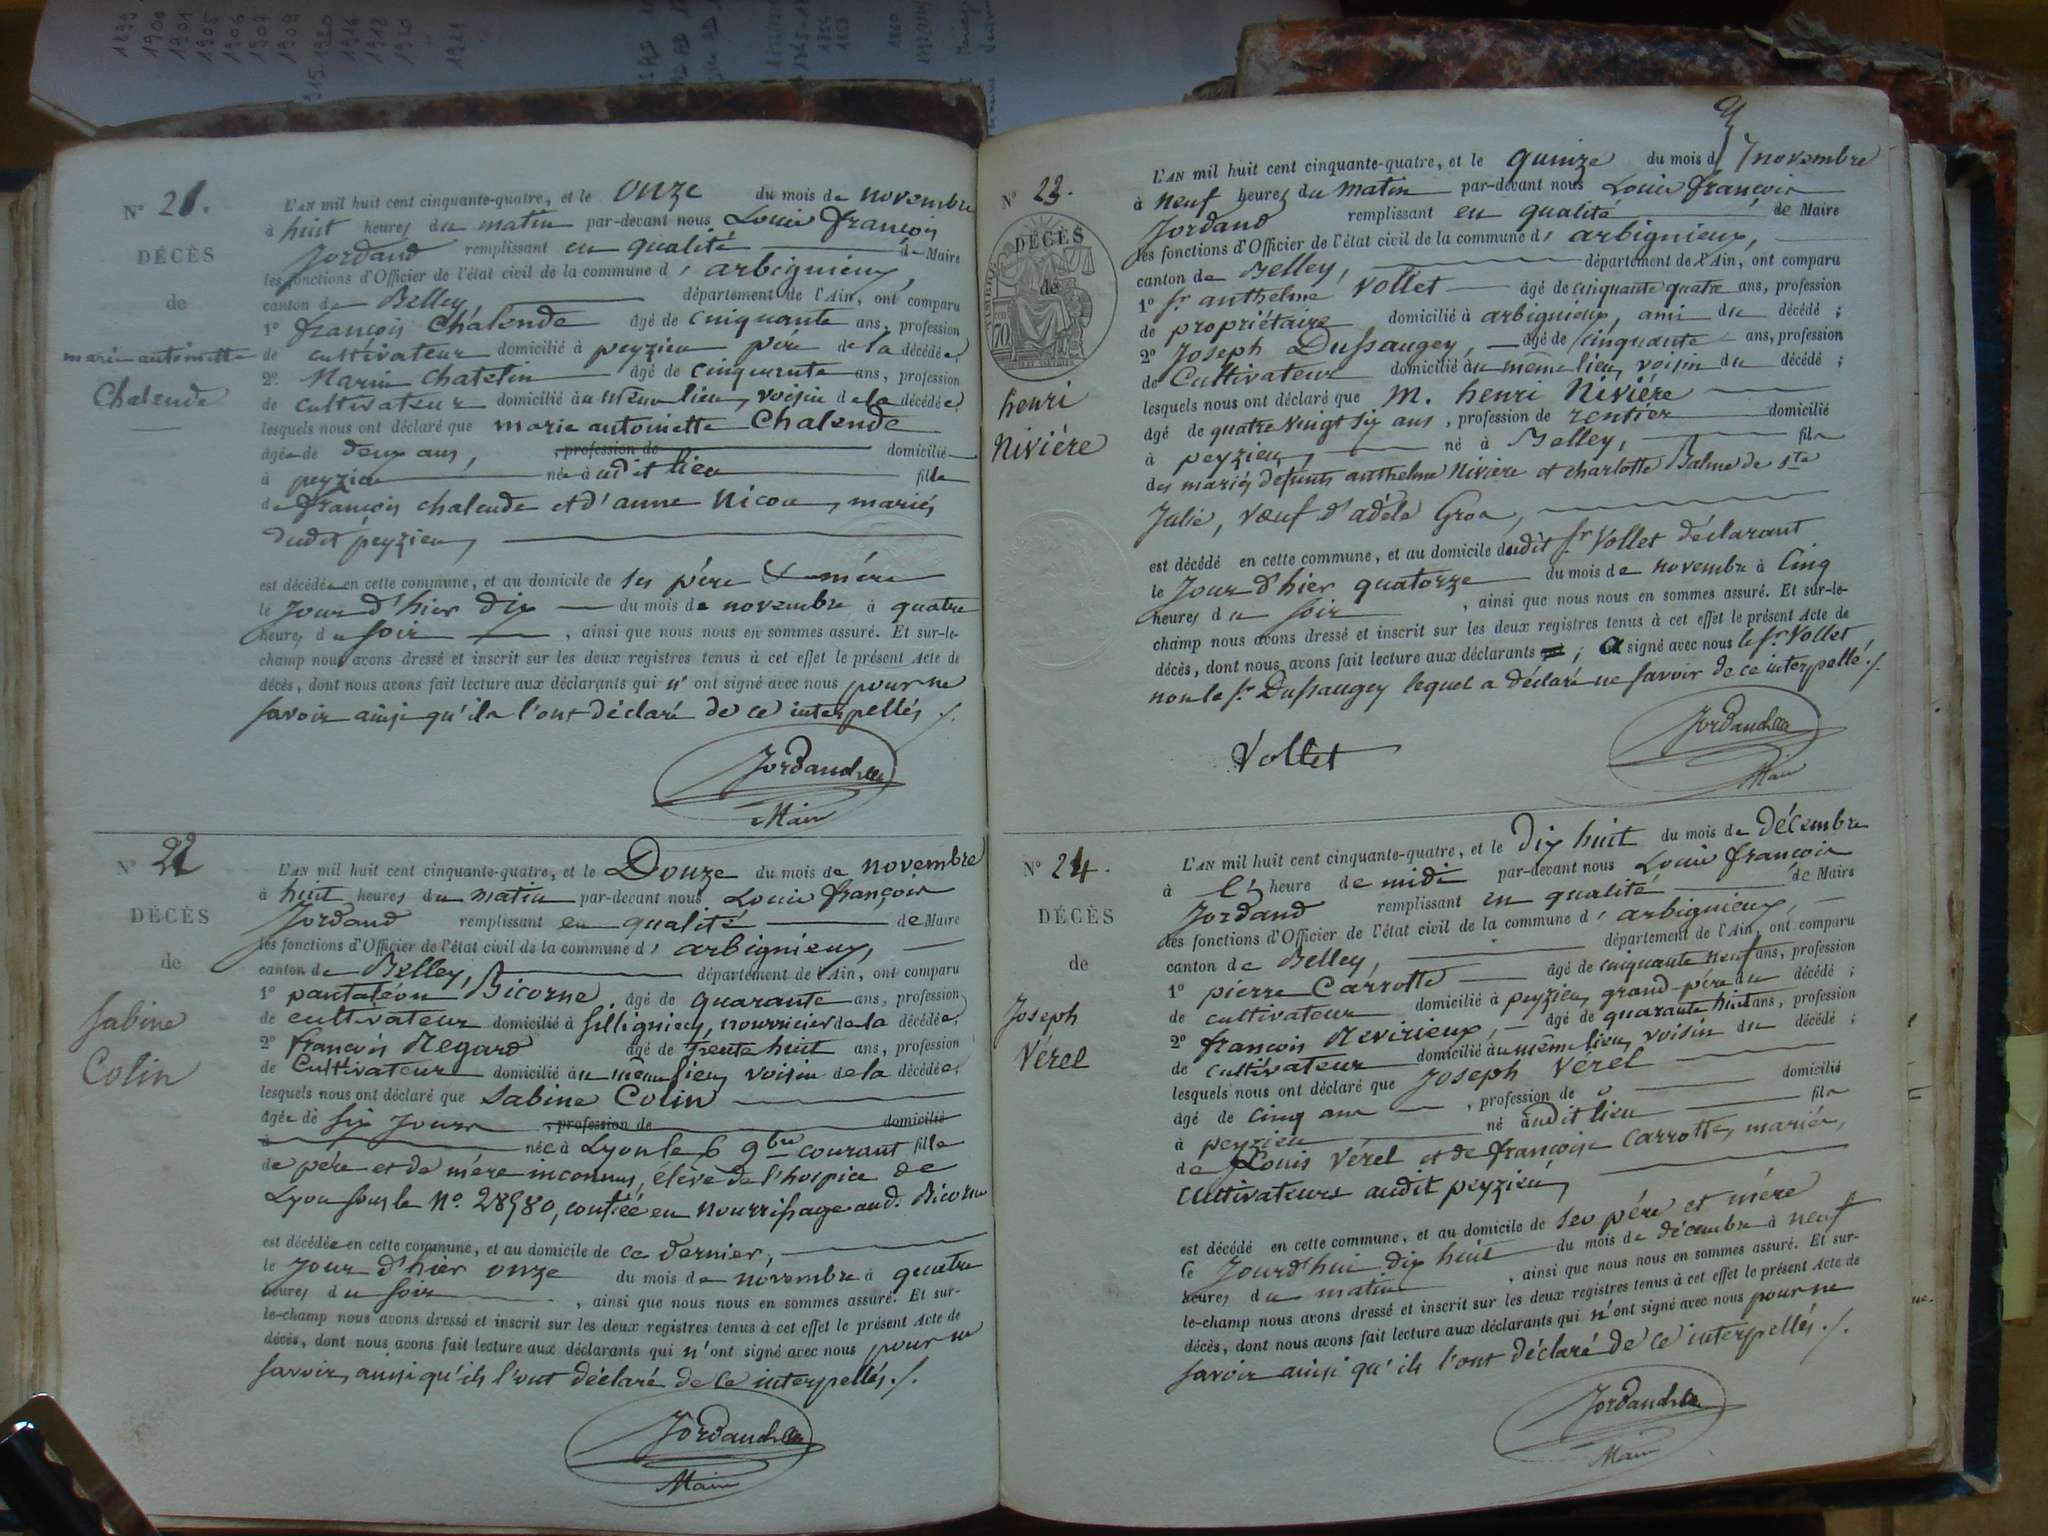 1899
1900
1901
1905
1906
1907
1909
1915-1920
1916
1918
1920
1921
N° 21.
DÉCÈS
de
marie antoinette
Chalende
L'AN mil huit cent cinquante-quatre, et le onze du mois de novembre
à huit heures du matin par-devant nous Louis françois
Jordand remplissant en qualité de Maire
les fonctions d'Officier de l'état civil de la commune d'arbignieux,
canton de Belley, département de l'Ain, ont comparu
1° françois Chalende âgé de cinquante ans, profession
de cultivateur domicilié à peyzieu père de la décédée;
2° Marin chatelin âgé de cinquante ans, profession
de cultivateur domicilié au même lieu, voisin de la décédée;
lesquels nous ont déclaré que marie antoinette Chalende
âgée de deux ans, , profession de domicilié
à peyzieu née audit lieu fille
de françois chalende et d'anne Nicou, mariés
dudit peyzieu,
est décédée en cette commune, et au domicile de ses père & mère
le jour d'hier dix du mois de novembre à quatre
heures du soir , ainsi que nous nous en sommes assuré. Et sur-le-
champ nous avons dressé et inscrit sur les deux registres tenus à cet effet le présent Acte de
décès, dont nous avons fait lecture aux déclarants qui n'ont signé avec nous pour ne
savoir ainsi qu'ils l'ont déclaré de ce interpellés ./.
Jordand
Maire
N° 22
DÉCÈS
de
Sabine
Colin
L'AN mil huit cent cinquante-quatre, et le Douze du mois de novembre
à huit heures du matin par-devant nous Louis françois
Jordand remplissant en qualité de Maire
les fonctions d'Officier de l'état civil de la commune d'arbignieux,
canton de Belley, département de l'Ain, ont comparu
1° pantaléon Bicorne âgé de quarante ans, profession
de cultivateur domicilié à Sillignieu, nourricier de la décédée;
2° françois Megard âgé de trente huit ans, profession
de Cultivateur domicilié au même lieu, voisin de la décédée;
lesquels nous ont déclaré que Sabine Colin
âgée de six jours , profession de domicilié
à née à Lyon le 6 9bre courant fille
de père et de mère inconnus, élève de l'hospice de
Lyon sous le N° 28580, confiée en nourrissage aud. Bicorne
est décédée en cette commune, et au domicile de ce dernier,
le jour d'hier onze du mois de novembre à quatre
heures du soir , ainsi que nous nous en sommes assuré. Et sur-
le-champ nous avons dressé et inscrit sur les deux registres tenus à cet effet le présent Acte de
décès, dont nous avons fait lecture aux déclarants qui n'ont signé avec nous pour ne
savoir, ainsi qu'ils l'ont déclaré de ce interpellés ./.
Jordand
Maire
N° 23.
DÉCÈS
de
henri
Nivière
L'AN mil huit cent cinquante-quatre, et le quinze du mois de novembre
à neuf heures du matin par-devant nous Louis françois
Jordand remplissant en qualité de Maire
les fonctions d'Officier de l'état civil de la commune d'arbignieux,
canton de Belley, département de l'Ain, ont comparu
1° Sr anthelme Vollet âgé de cinquante quatre ans, profession
de propriétaire domicilié à arbignieux, ami du décédé;
2° Joseph Dussaugey, âgé de cinquante ans, profession
de Cultivateur domicilié au même lieu, voisin du décédé;
lesquels nous ont déclaré que M. henri Nivière
âgé de quatre vingt six ans, profession de rentier domicilié
à peyzieu, né à Belley, fils
des mariés défunts anthelme Nivière et charlotte Balme de Ste
Julie, Vœuf d'adèle Gros,
est décédé en cette commune, et au domicile dudit Sr Vollet déclarant
le Jour d'hier quatorze du mois de novembre à Cinq
heures du soir , ainsi que nous nous en sommes assuré. Et sur-le-
champ nous avons dressé et inscrit sur les deux registres tenus à cet effet le présent Acte de
décès, dont nous avons fait lecture aux déclarants ; a signé avec nous le Sr Vollet
non le Sr Dussaugey lequel a déclaré ne savoir de ce interpellé ./.
Vollet
Jordand
Maire
N° 24.
DÉCÈS
de
Joseph
Vérel
L'AN mil huit cent cinquante-quatre, et le Dix huit du mois de décembre
à l' heure de midi par-devant nous Louis françois
Jordand remplissant en qualité de Maire
les fonctions d'Officier de l'état civil de la commune d'arbignieux,
canton de Belley, département de l'Ain, ont comparu
1° pierre Carrotte âgé de cinquante neuf ans, profession
de cultivateur domicilié à peyzieu, grand-père du décédé;
2° françois Revirieux, âgé de quarante huit ans, profession
de cultivateur domicilié au même lieu, voisin du décédé;
lesquels nous ont déclaré que Joseph Vérel
âgé de cinq ans , profession de domicilié
à peyzieu né audit lieu fils
de Louis Vérel et de françoise Carrotte, mariés,
cultivateurs audit peyzieu,
est décédé en cette commune, et au domicile de ses père et mère
le jourd'hui dix huit du mois de décembre à neuf
heures du matin , ainsi que nous nous en sommes assuré. Et sur-
le-champ nous avons dressé et inscrit sur les deux registres tenus à cet effet le présent Acte de
décès, dont nous avons fait lecture aux déclarants qui n'ont signé avec nous pour ne
savoir ainsi qu'ils l'ont déclaré de ce interpellés ./.
Jordand
Maire